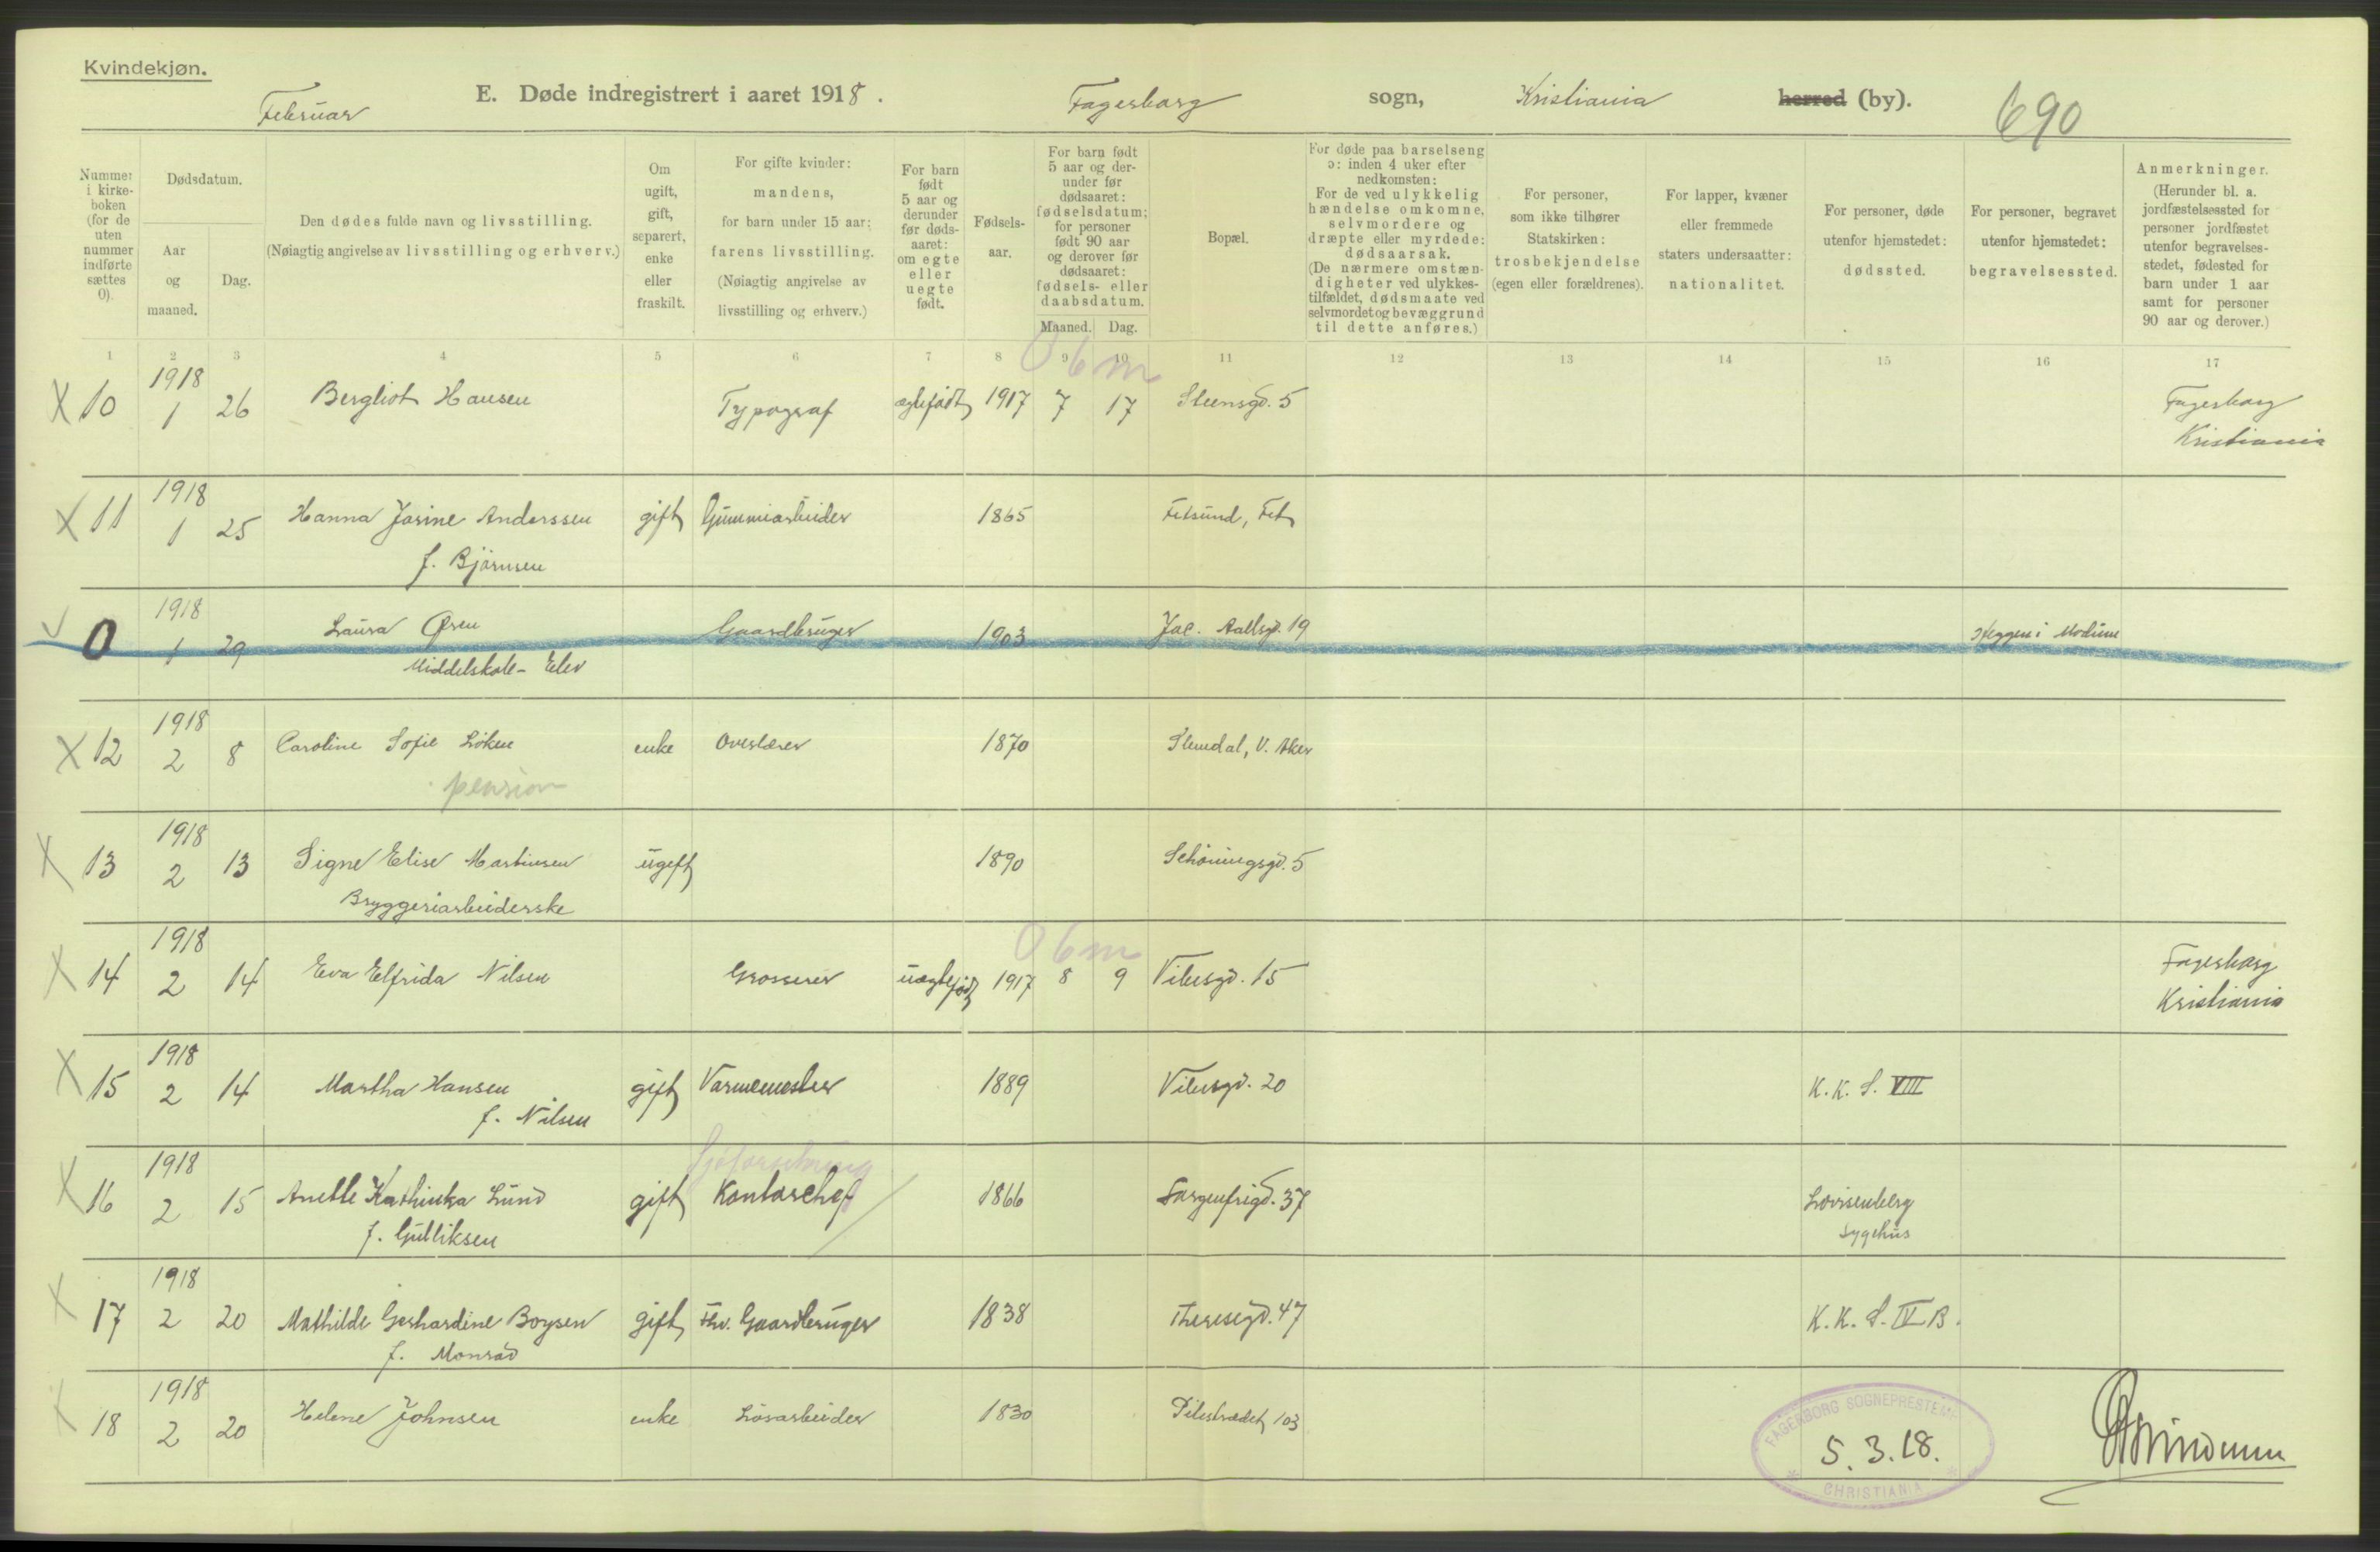 Kvindekjøn.
Februar E. Døde indregistrert i aaret 1918. Fagerborg sogn, Kristiania herred (by). 690
Nummer i kirke-boken (for de uten nummer indførte sættes 0).
Dødsdatum.
Aar og maaned.
Dag.
Den dødes fulde navn og livsstilling.
(Nøiagtig angivelse av livsstilling og erhverv.)
Om ugift, gift, separert, enke eller fraskilt.
For gifte kvinder: mandens, for barn under 15 aar: farens livsstilling. (Nøiagtig angivelse av livsstilling og erhverv.)
For barn født 5 aar og derunder før døds-aaret: om egte eller uegte født.
Fødsels-aar.
For barn født 5 aar og der-under før dødsaaret: fødselsdatum; for personer født 90 aar og derover før dødsaaret: fødsels- eller daabsdatum.
Maaned. Dag.
Bopæl.
For døde paa barselseng ɔ: inden 4 uker efter nedkomsten: For de ved ulykkelig hændelse omkomne, selvmordere og dræpte eller myrdede: dødsaarsak. (De nærmere omstæn-digheter ved ulykkes-tilfældet, dødsmaate ved selvmordet og bevæggrund til dette anføres.)
For personer, som ikke tilhører Statskirken: trosbekjendelse (egen eller forældrenes).
For lapper, kvæner eller fremmede staters undersaatter: nationalitet.
For personer, døde utenfor hjemstedet: dødssted.
For personer, begravet utenfor hjemstedet: begravelsessted.
Anmerkninger. (Herunder bl. a. jordfæstelsessted for personer jordfæstet utenfor begravelses-stedet, fødested for barn under 1 aar samt for personer 90 aar og derover.)
1 2 3 4 5 6 7 8 9 10 11 12 13 14 15 16 17
0 6 m
X 10 1918 1 26 Bergliot Hansen Typograf egtefødt 1917 7 17 Steensgd. 5 Fagerborg
Kristiania
X 11 1918 1 25 Hanna Josine Anderssen gift Gummiarbeider 1865 Fetsund, Fet
f. Bjørnsen
0 1918 1 29 Laura Øren Gaardbruger 1903 Jac. Aallsgd. 19 Heggen i Modum
Middelskole-Elev
X 12 1918 2 8 Caroline Sofie Løken enke Overlærer 1870 Slemdal, V. Aker
pension
X 13 1918 2 13 Signe Elise Martinsen ugift 1890 Schøningsgd. 5
Bryggeriarbeiderske
0 6 m
X 14 1918 2 14 Eva Elfrida Nilsen Grosserer uegtefødt 1917 8 9 Vibesgd. 15 Fagerborg
Kristiania
X 15 1918 2 14 Martha Hansen gift Varmemester 1889 Vibesgd. 20 K. K. S. VIII
f. Nilsen
Sjøforsikring
X 16 1918 2 15 Anette Kathinka Lund gift Kontorchef 1866 Sorgenfrigd. 37 Lovisenberg
f. Gulliksen Sygehus
X 17 1918 2 20 Mathilde Gerhardine Boysen gift Fhv. Gaardbruger 1838 Theresegd. 47 K. K. S. IV B.
f. Monrad
X 18 1918 2 20 Helene Johnsen enke Løsarbeider 1830 Pilestrædet 103
FAGERBORG SOGNEPRESTEMB
5.3.18.
CHRISTIANIA